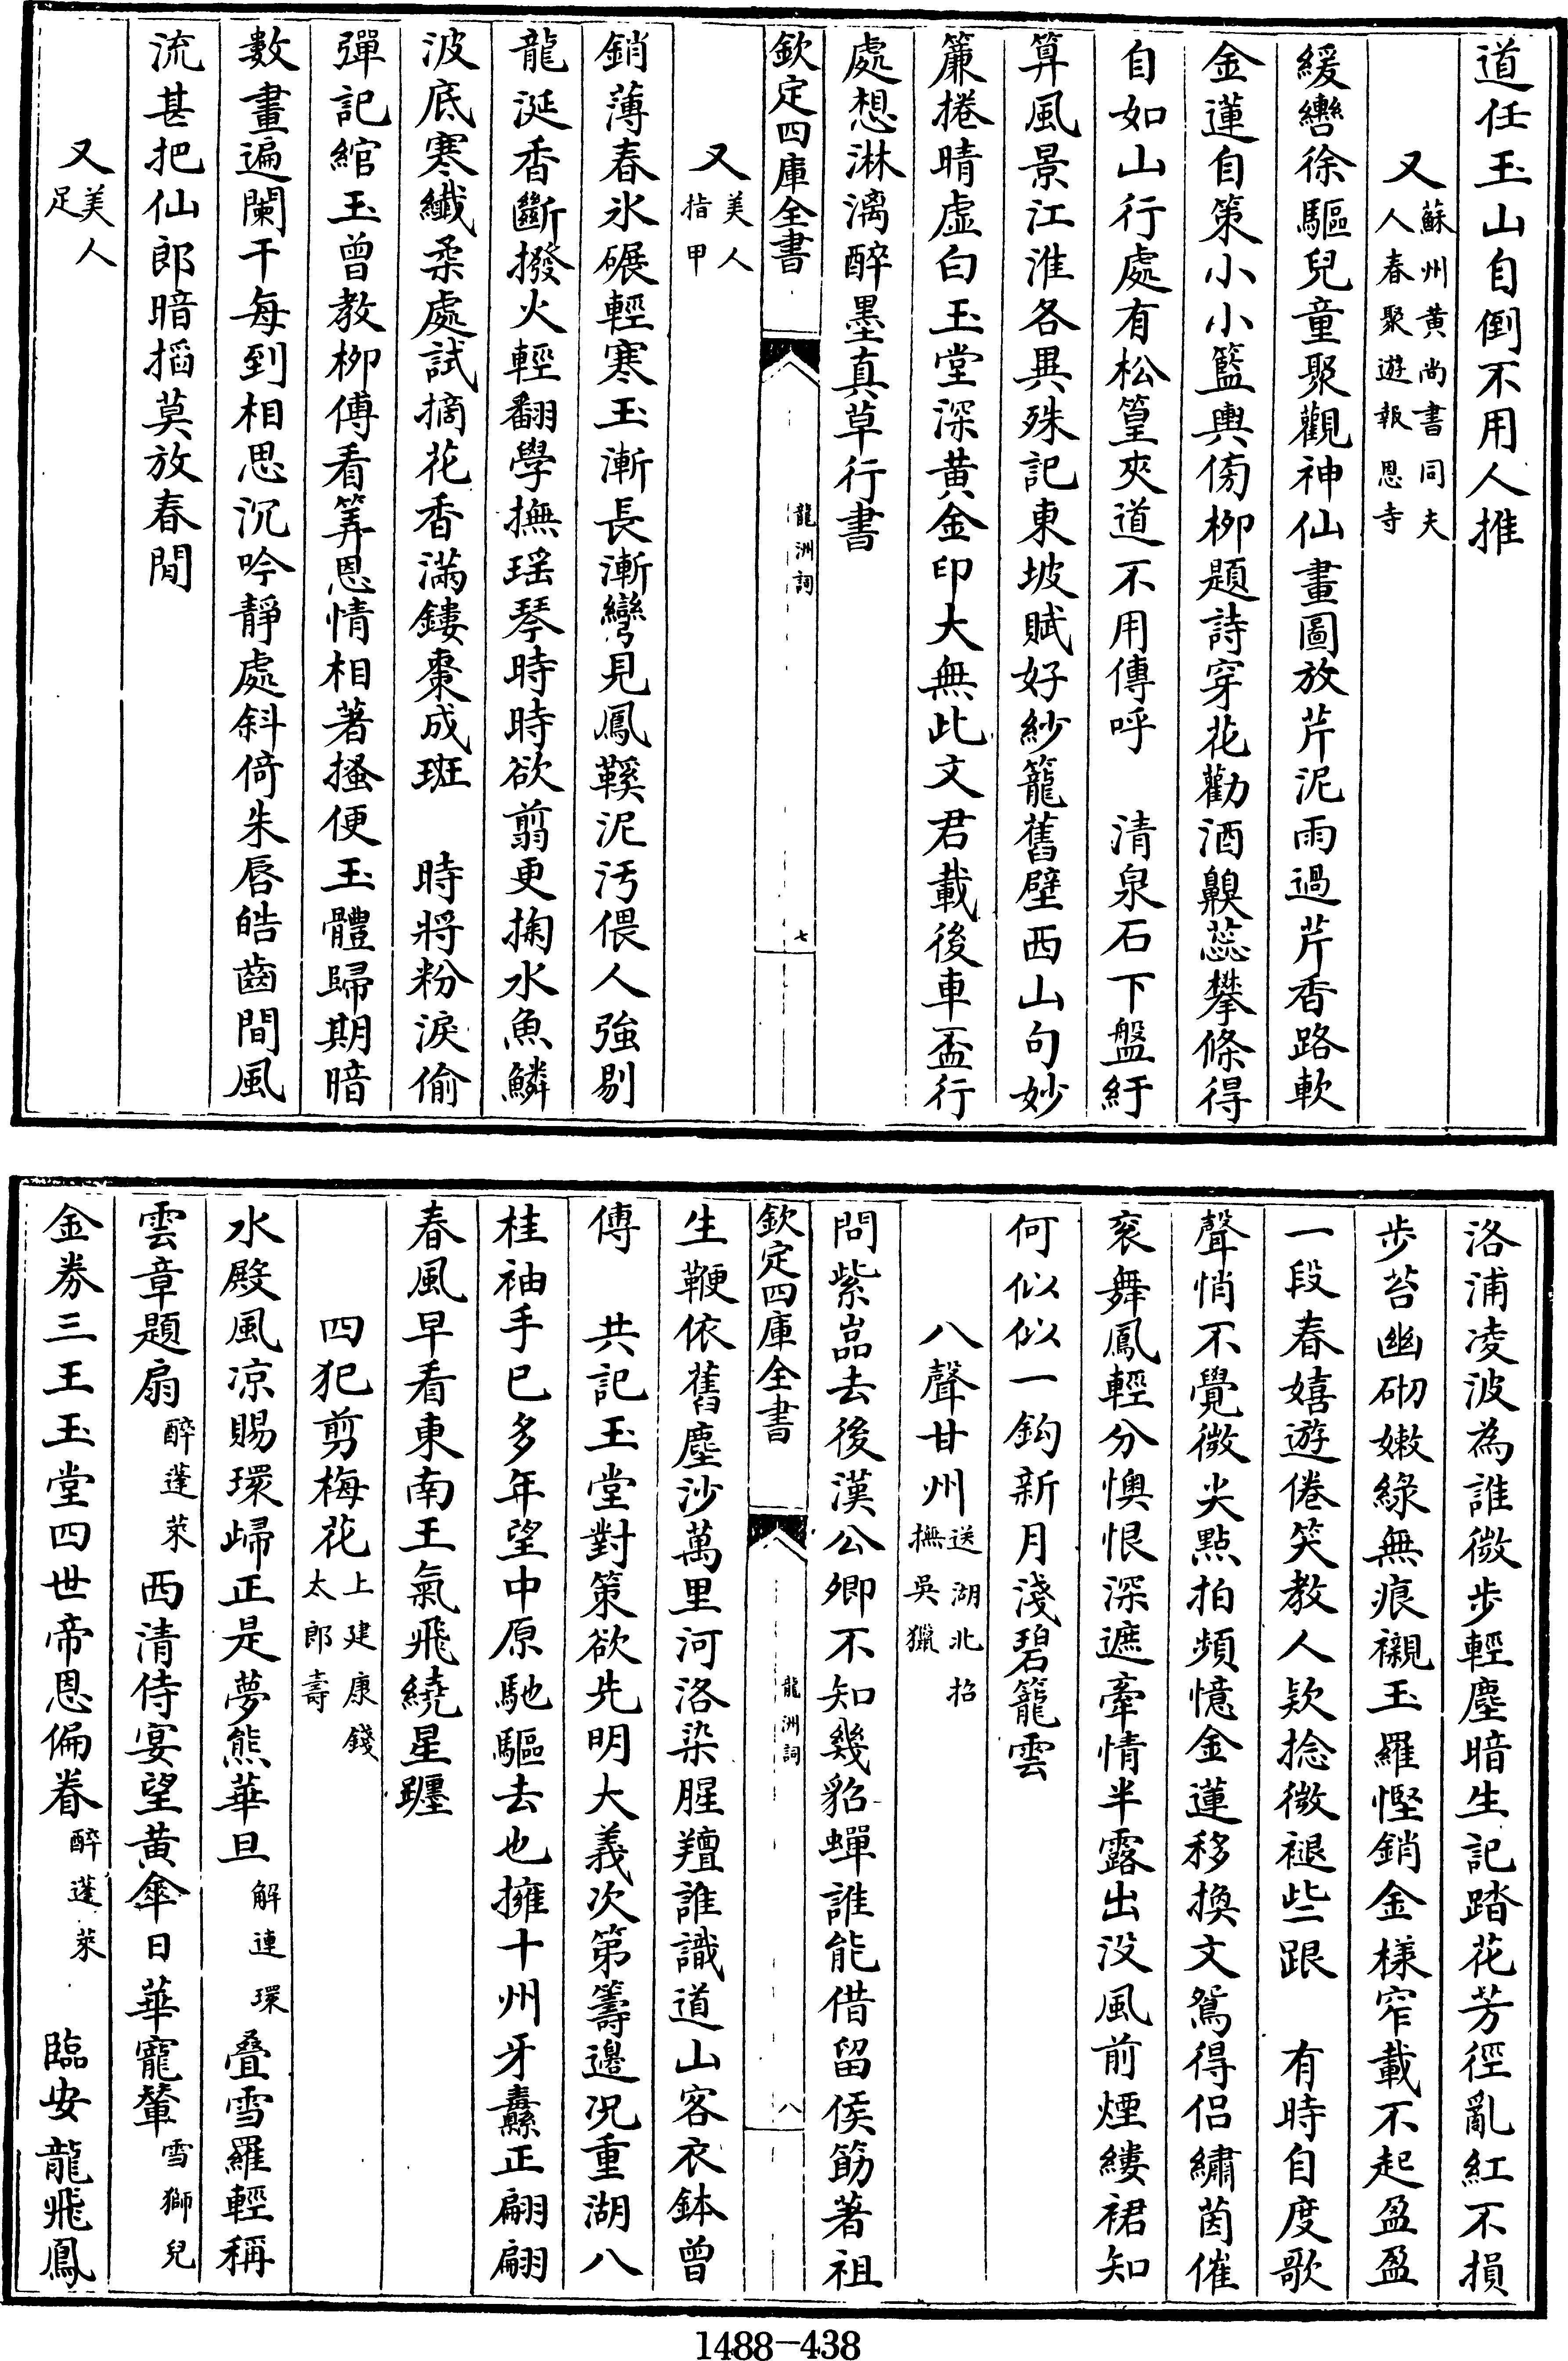 道任玉山自倒不用人推
又蘇州黄尚書同夫人春聚遊報恩寺
緩轡徐驅兒童聚觀神仙畫圖放芹泥雨過芹香路軟
金蓮自策小小籃輿傍柳題詩穿花勸酒齅蕊攀條得
自如山行處有松篁夾道不用傳呼　清泉石下盤紆
算風景江淮各異殊記東坡賦好紗籠舊壁西山句妙
簾捲晴虚白玉堂深黄金印大無此文君載後車盃行
處想淋漓醉墨真草行書
欽定四庫全書
龍洲詞
七
又美人指甲
銷薄春冰碾輕寒玉漸長漸彎見鳳鞵泥汚偎人強剔
龍涎香斷撥火輕翻學撫瑶琴時時欲翦更掬水魚鱗
波底寒纖柔處試摘花香滿鏤棗成斑　時將粉淚偷
彈記綰玉曾教柳傅看筭恩情相著搔便玉體歸期暗
數畫遍闌干每到相思沉吟靜處斜倚朱唇皓齒間風
流甚把仙郎暗搯莫放春閒
又美人足
洛浦凌波為誰微步輕塵暗生記踏花芳徑亂紅不損
步苔幽砌嫩綠無痕襯玉羅慳銷金樣窄載不起盈盈
一段春嬉遊倦笑教人欵捻微褪些跟　有時自度歌
聲悄不覺微尖點拍頻憶金蓮移換文鴛得侣繡茵催
衮舞鳳輕分懊恨深遮牽情半露出没風前煙縷裙知
何似似一鈎新月淺碧籠雲
八聲甘州送湖北招撫吳獵
問紫嵓去後漢公卿不知幾貂蟬誰能借留侯筯著祖
欽定四庫全書
龍洲詞
八
生鞭依舊塵沙萬里河洛染腥羶誰識道山客衣鉢曾
傳　共記玉堂對策欲先明大義次第籌邊况重湖八
桂袖手已多年望中原馳驅去也擁十州牙纛正翩翩
春風早看東南王氣飛繞星躔
四犯剪梅花上建康錢太郎壽
水殿風凉賜環歸正是夢熊華旦解連環叠雪羅輕稱
雲章題扇醉蓬萊西清侍宴望黄傘日華寵輦雪獅兒
金劵三王玉堂四世帝恩偏眷醉蓬萊　臨安龍飛鳳
1488-438